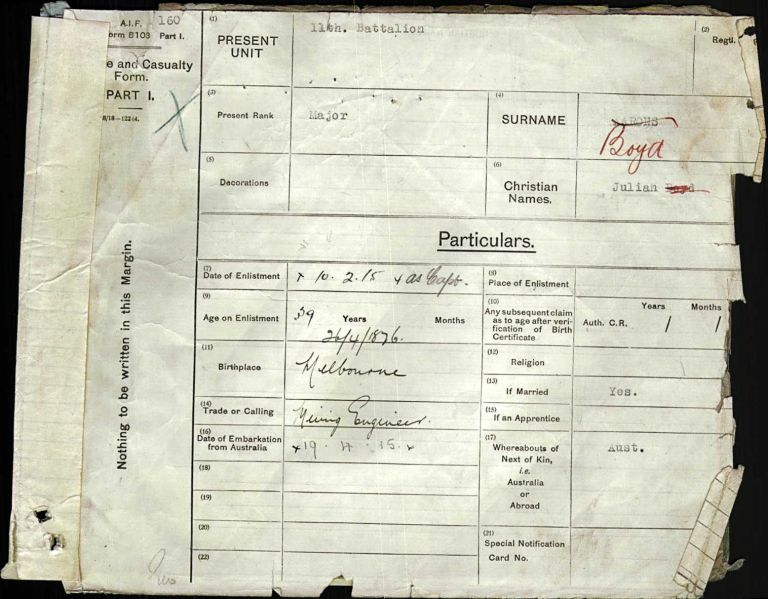 A.I.F. 160
orm B103 Part I.
e and Casualty
Form.
PART I.
8/18—12244.
Nothing to be written in this Margin.
(1)
PRESENT
UNIT
11th. Battalion
(2)
Regtl.
(3)
Present Rank
Major
(4)
SURNAME
Boyd
(5)
Decorations
(6)
Christian
Names.
Julian
Particulars.
(7)
Date of Enlistment
x 10. 2. 15 x as Capt.
(8)
Place of Enlistment
(9)
Age on Enlistment
39 Years Months
26/4/1876.
(10)
Any subsequent claim
as to age after veri-
fication of Birth
Certificate
Years Months
Auth. C.R. / /
(11)
Birthplace
Melbourne
(12)
Religion
(13)
If Married
Yes.
(14)
Trade or Calling
Mining Engineer.
(15)
If an Apprentice
(16)
Date of Embarkation
from Australia
(17)
Whereabouts of
Next of Kin,
i.e.
Australia
or
Abroad
Aust.
(18)
(19)
(20)
(21)
Special Notification
Card No.
(22)